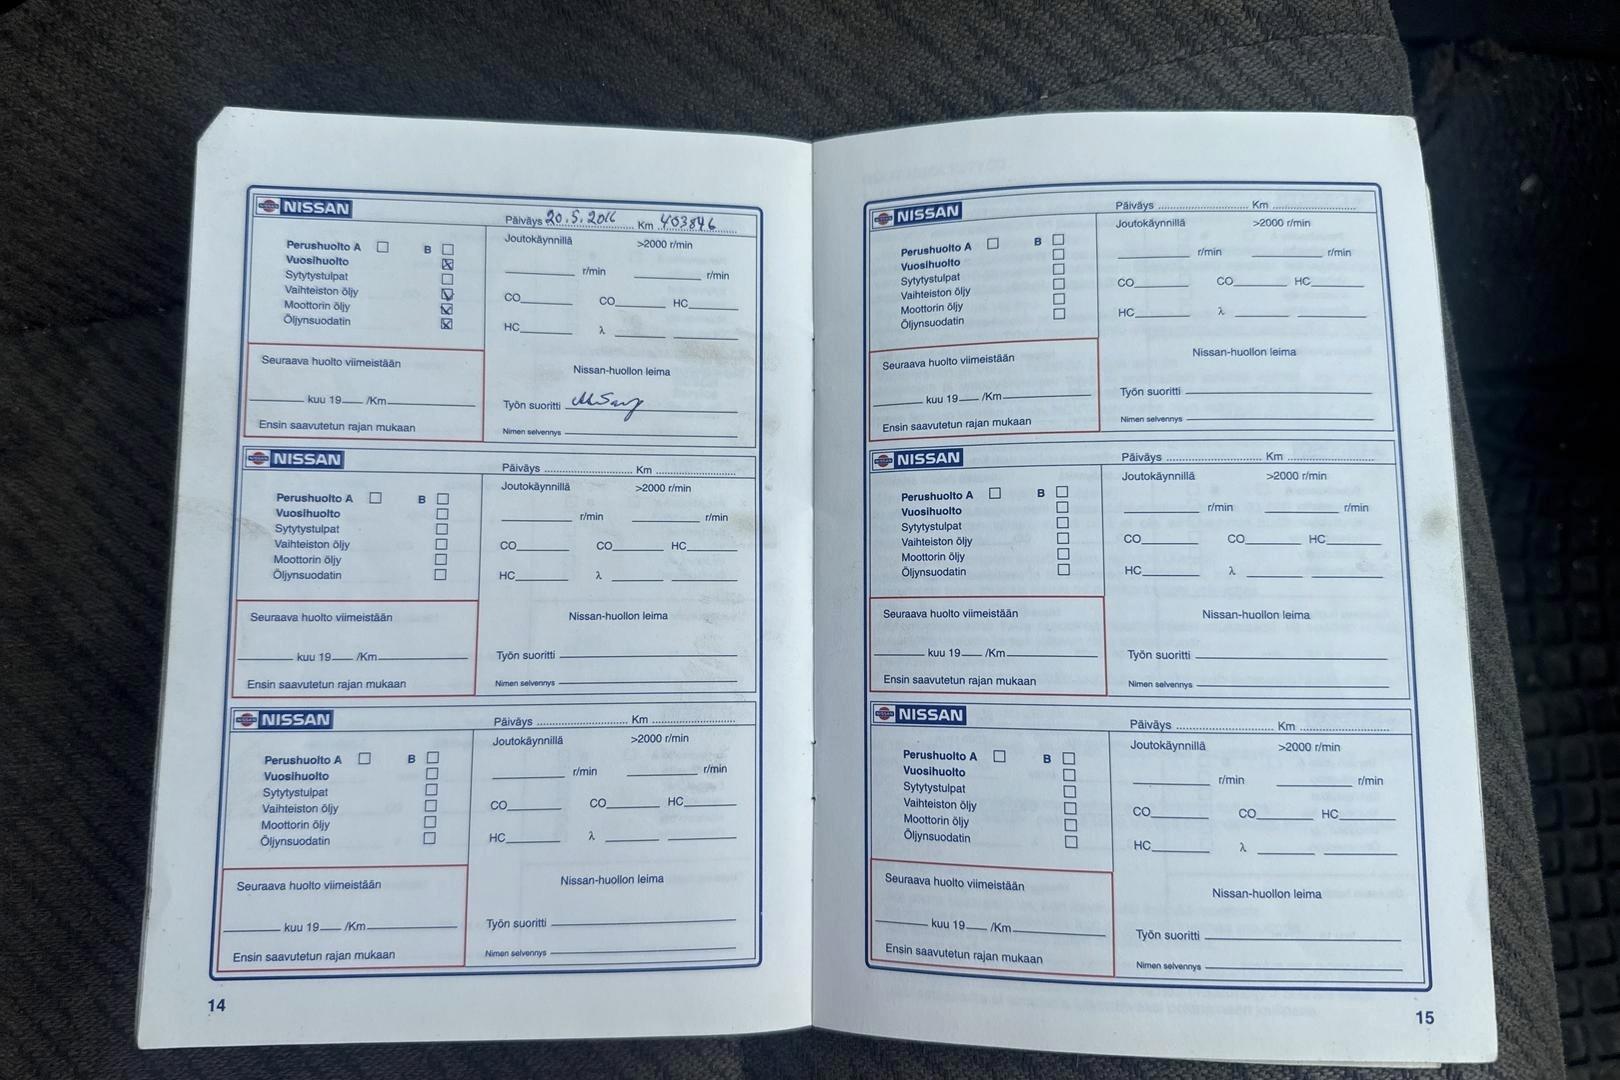 NISSAN
Päiväys 20.5.2016 Km 403846
Perushuolto A B
Vuosihuolto
Sytytystulpat
Vaihteiston öljy
Moottorin öljy
Öljynsuodatin
Joutokäynnillä >2000 r/min
r/min r/min
CO CO HC
HC λ
Seuraava huolto viimeistään
kuu 19 /Km
Ensin saavutetun rajan mukaan
Nissan-huollon leima
Työn suoritti
Nimen selvennys
NISSAN
Päiväys Km
Perushuolto A B
Vuosihuolto
Sytytystulpat
Vaihteiston öljy
Moottorin öljy
Öljynsuodatin
Joutokäynnillä >2000 r/min
r/min r/min
CO CO HC
HC λ
Seuraava huolto viimeistään
kuu 19 /Km
Ensin saavutetun rajan mukaan
Nissan-huollon leima
Työn suoritti
Nimen selvennys
NISSAN
Päiväys Km
Perushuolto A B
Vuosihuolto
Sytytystulpat
Vaihteiston öljy
Moottorin öljy
Öljynsuodatin
Joutokäynnillä >2000 r/min
r/min r/min
CO CO HC
HC λ
Seuraava huolto viimeistään
kuu 19 /Km
Ensin saavutetun rajan mukaan
Nissan-huollon leima
Työn suoritti
Nimen selvennys
14
NISSAN
Päiväys Km
Perushuolto A B
Vuosihuolto
Sytytystulpat
Vaihteiston öljy
Moottorin öljy
Öljynsuodatin
Joutokäynnillä >2000 r/min
r/min r/min
CO CO HC
HC λ
Seuraava huolto viimeistään
kuu 19 /Km
Ensin saavutetun rajan mukaan
Nissan-huollon leima
Työn suoritti
Nimen selvennys
NISSAN
Päiväys Km
Perushuolto A B
Vuosihuolto
Sytytystulpat
Vaihteiston öljy
Moottorin öljy
Öljynsuodatin
Joutokäynnillä >2000 r/min
r/min r/min
CO CO HC
HC λ
Seuraava huolto viimeistään
kuu 19 /Km
Ensin saavutetun rajan mukaan
Nissan-huollon leima
Työn suoritti
Nimen selvennys
NISSAN
Päiväys Km
Perushuolto A B
Vuosihuolto
Sytytystulpat
Vaihteiston öljy
Moottorin öljy
Öljynsuodatin
Joutokäynnillä >2000 r/min
r/min r/min
CO CO HC
HC λ
Seuraava huolto viimeistään
kuu 19 /Km
Ensin saavutetun rajan mukaan
Nissan-huollon leima
Työn suoritti
Nimen selvennys
15